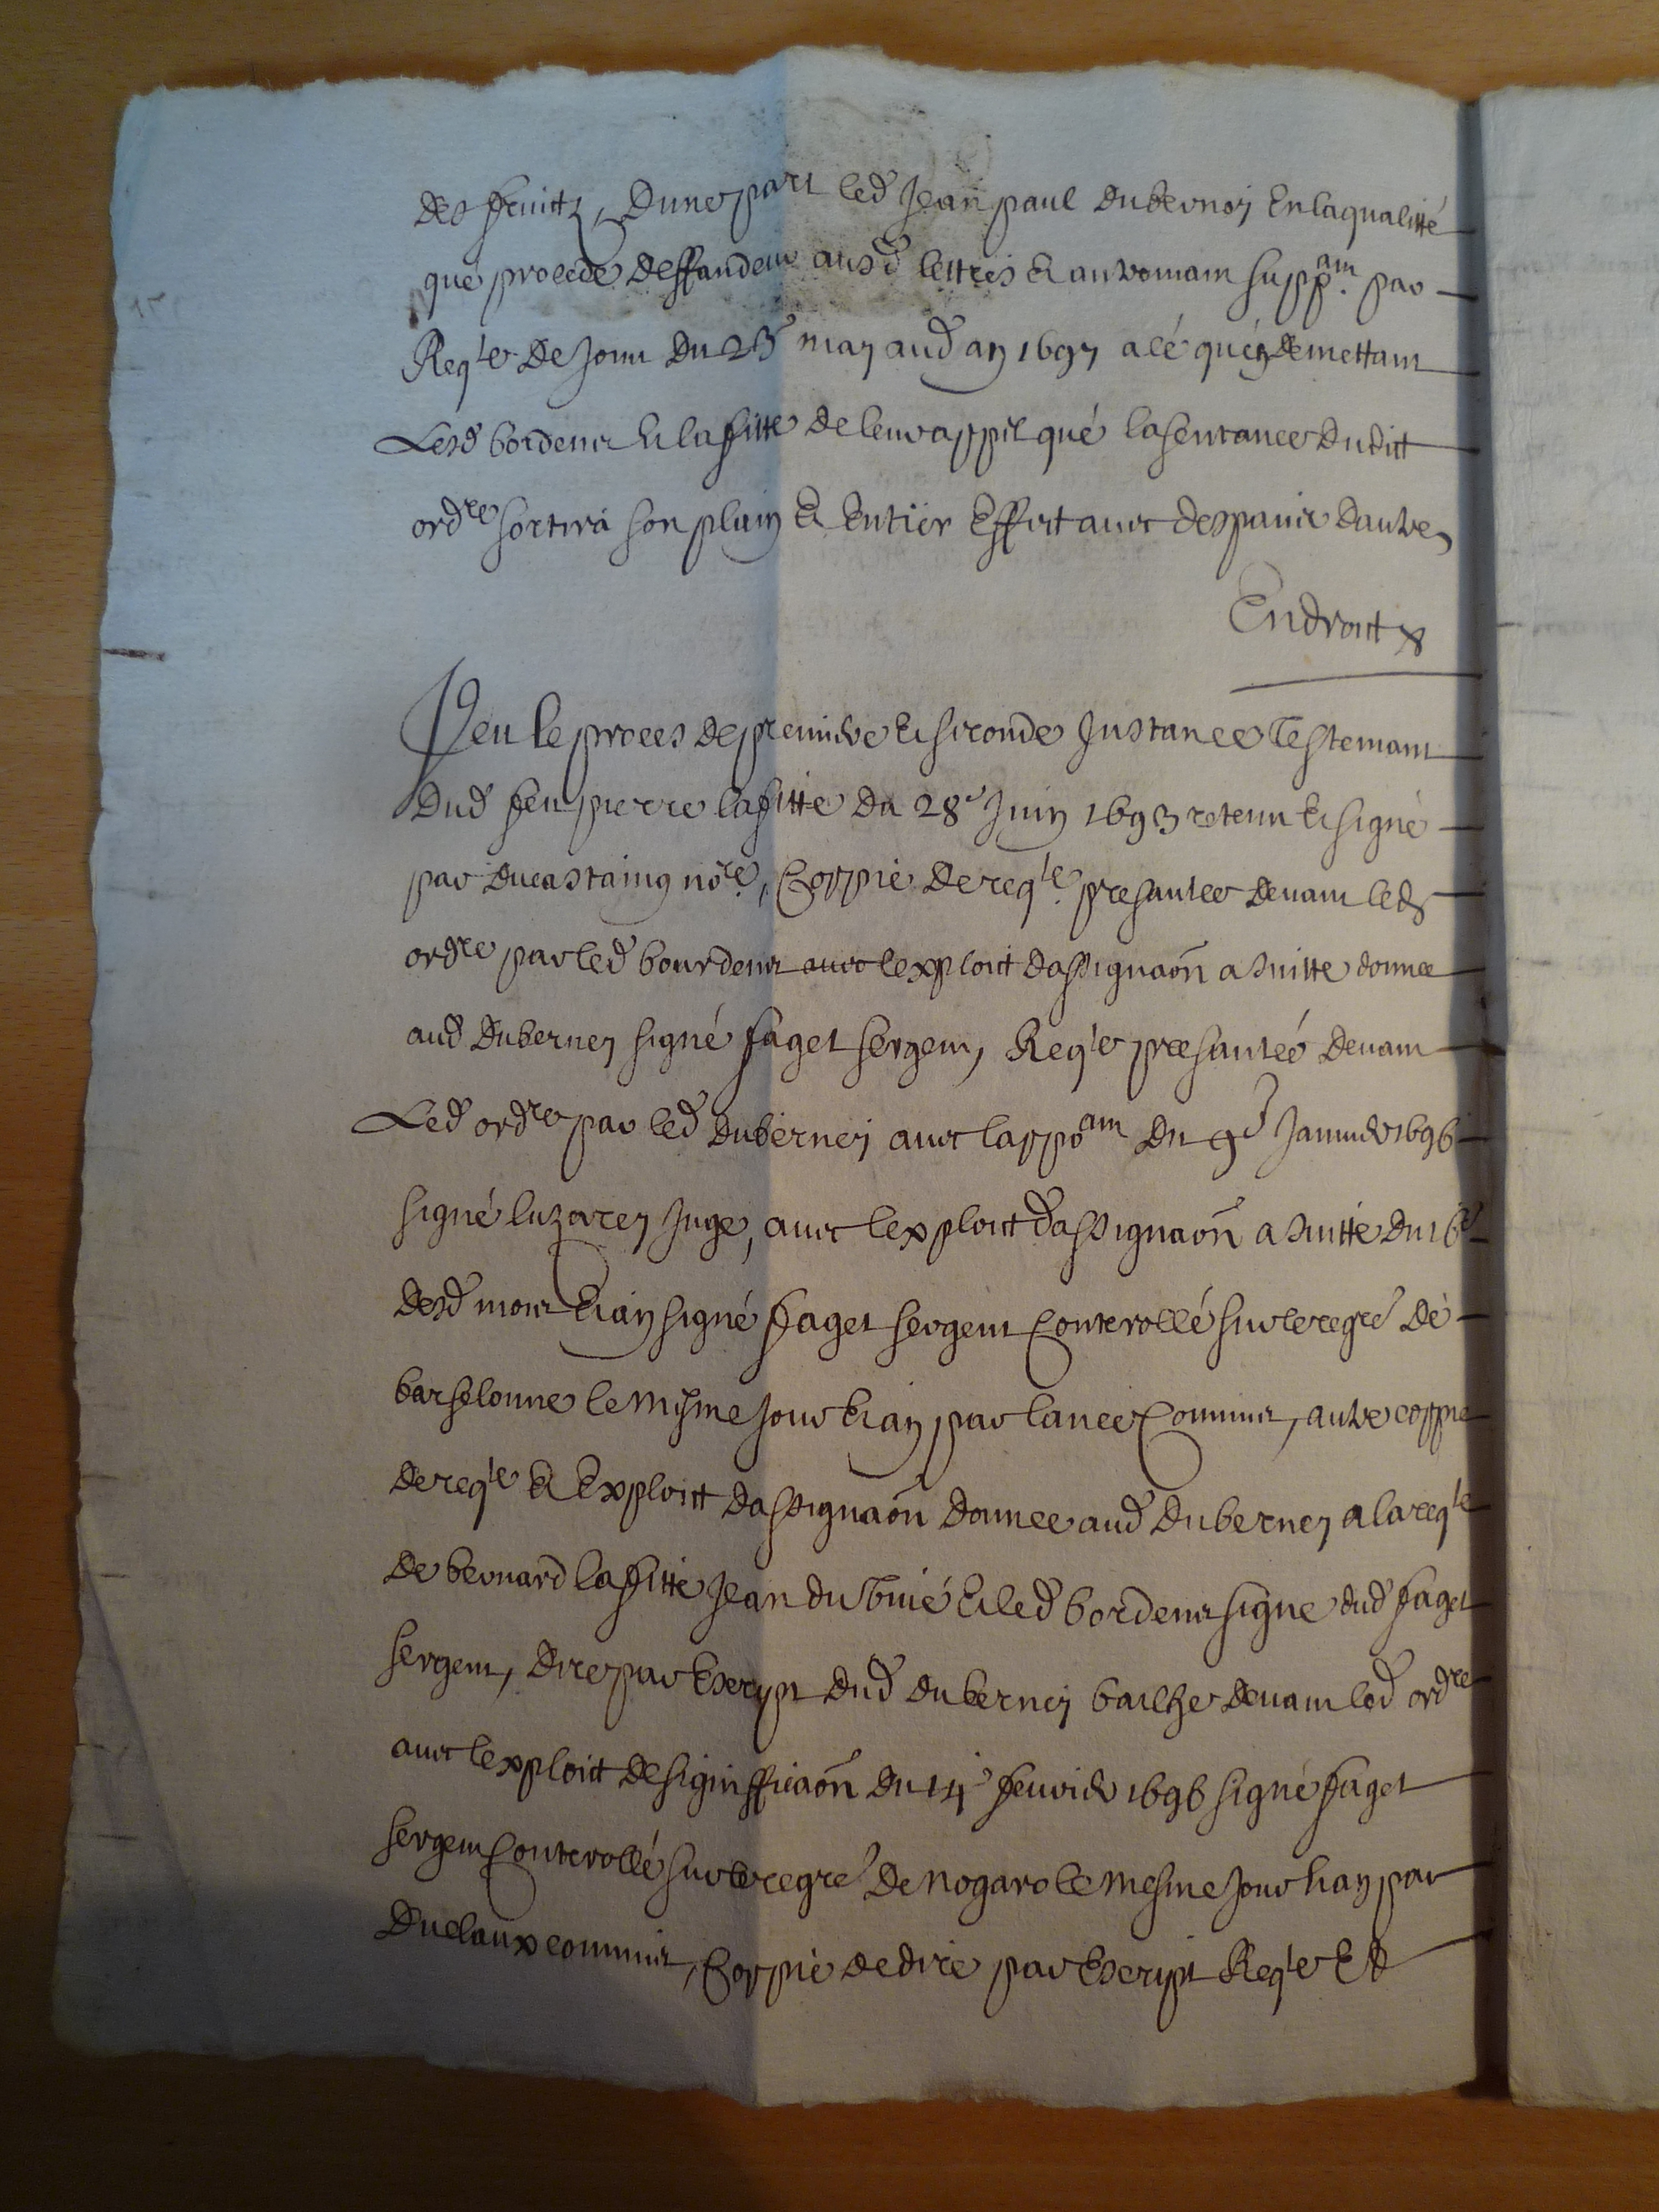 des fruitz, dune part led Jean paul duberney En la qualitté
que procede deffandeur ausd lettres Et autremant supp.ant par
Reqte de Joint du 23e may aud an 1697 a cé qu'én demettant
Lesd bordenx Et lafitte de leur appel qué la sentance dudict
ordre sortira son plain Et Entiër Effect avec despance dautre,
Endroict
Veu le proces de premiere Et seconde Instance Testemant
dud feu pierre lafitte du 28e Juin 1693 retenu Et signé
par ducastaing nore, Coppie de reqte presantee devant led
ordre par led bourdenx avec lexploict dassignaon a suitte donnee
aud duberney signé faget sergent, Reqte presanteé devant
Led ordre par led duberney avec lappoant du 9e Janvier 1696
signé luzarey Juge, avec lexploict dassignaon a suitte du 16e
desd mois Et an signé faget sergent Controllé sur le regre de
barselonne le mesme Jour Et an par lance Commis, autre coppie
de reqte Et Exploict dassignaon donnee aud duberney a la reqte
de bernard lafitte Jean Et led bordenx signe dud faget
sergent, dire par Escript dud duberney bailhe devant led ordre
avec lexploict de signifficaon du 14e fevrier 1696 signé faget
sergent Controllé sur le regre de nogaro le mesme Jour Et an par
duclaux commis, Coppie de dire par Escript Reqte Et